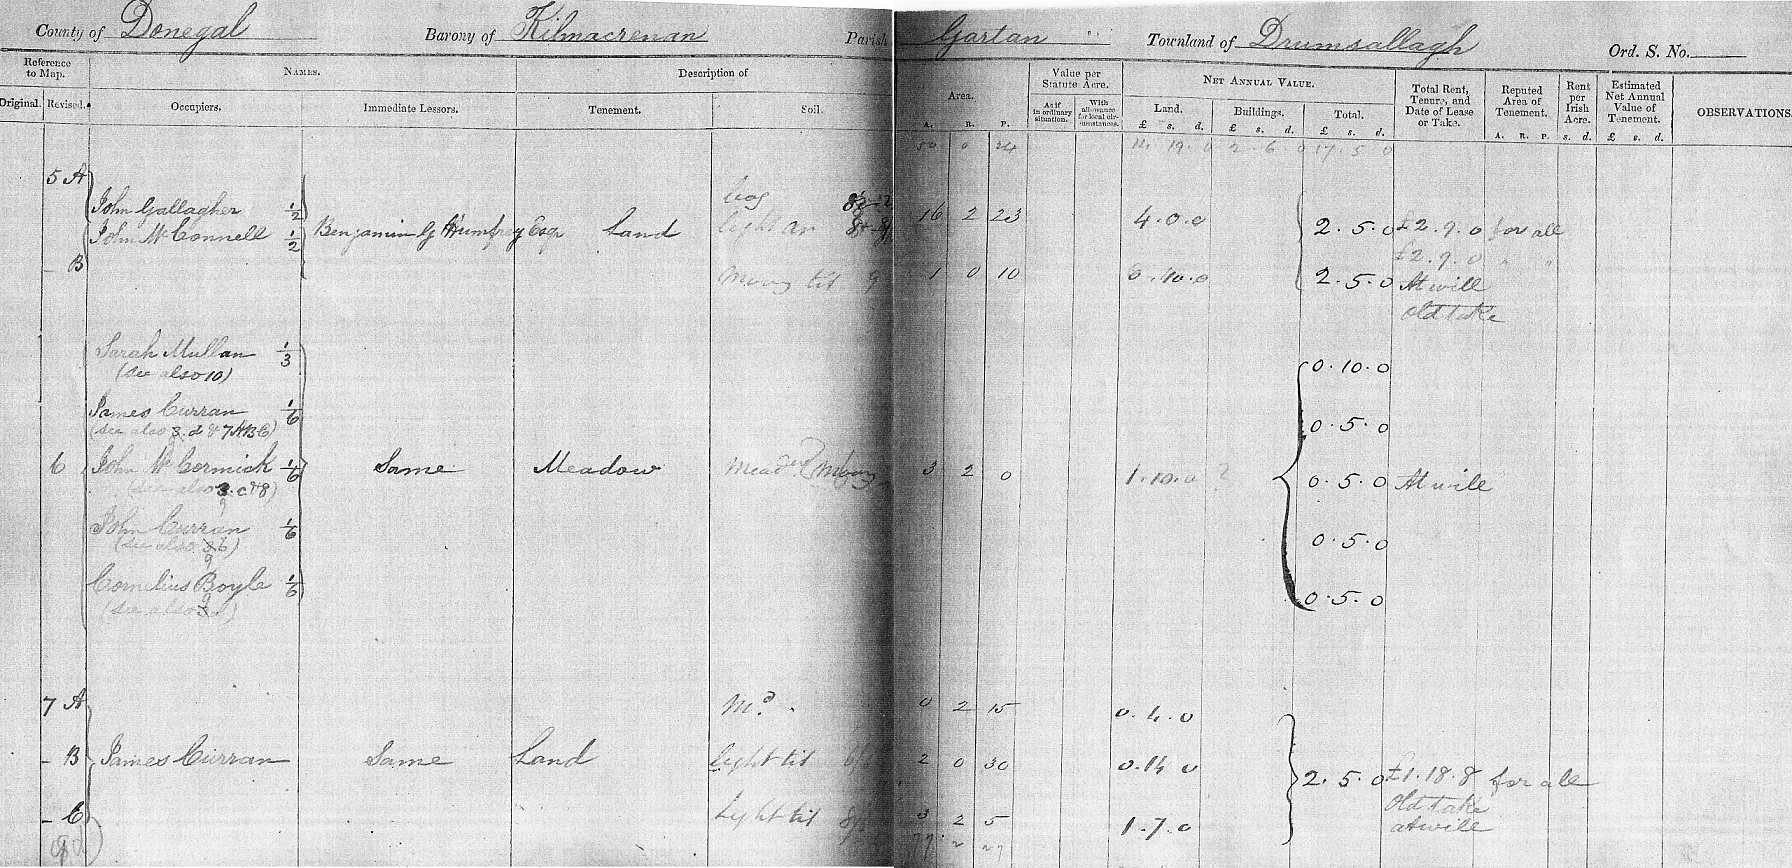 County of Donegal Barony of Kilmacrenan Parish Gartan Townland of Drumsallagh Ord. S. No.
Reference to Map. NAMES. Description of Area. Value per Statute Acre. NET ANNUAL VALUE. Total Rent, Tenure, and Date of Lease or Take. Reputed Area of Tenement. Rent per Irish Acre. Estimated Net Annual Value of Tenement. OBSERVATIONS.
Original. Revised. Occupiers. Immediate Lessors. Tenement. Soil. As if in ordinary situation. With allowance for local circumstances. Land. Buildings. Total.
A. R. P. £ s. d. £ s. d. £ s. d. A. R. P. s. d. £ s. d.
0 24 14. 19. 0 2. 6. 0 17. 5. 0
5 A
bog
John Gallagher 1/2 16 2 23 4. 0. 0
John McConnell 1/2 Benjamin G Humfrey Esqr Land light ar 2. 5. 0 £2. 9. 0 for all
£2. 9. 0 " "
- B 9 1 0 10 0. 10. 0 2. 5. 0 At will
Old take
Sarah Mullan 1/3 0. 10. 0
(see also 10)
James Curran 1/6 0. 5. 0
(see also 3. d & 7 A B C)
6 John McCormick 1/6 Same Meadow 3 2 0 1. 10. 0 ? 0. 5. 0 At will
(see also 3. c & 8)
9
John Curran 1/6 0. 5. 0
(see also 3 b)
9
Cornelius Boyle 1/6 0. 5. 0
(see also 3
9
7 A Md. 0 2 15 0. 4. 0
- B James Curran Same Land light til 2 0 30 0. 14. 0 2. 5. 0 £1. 18. 8 for all
Old take
- C light til 3 2 5 1. 7. 0 at will